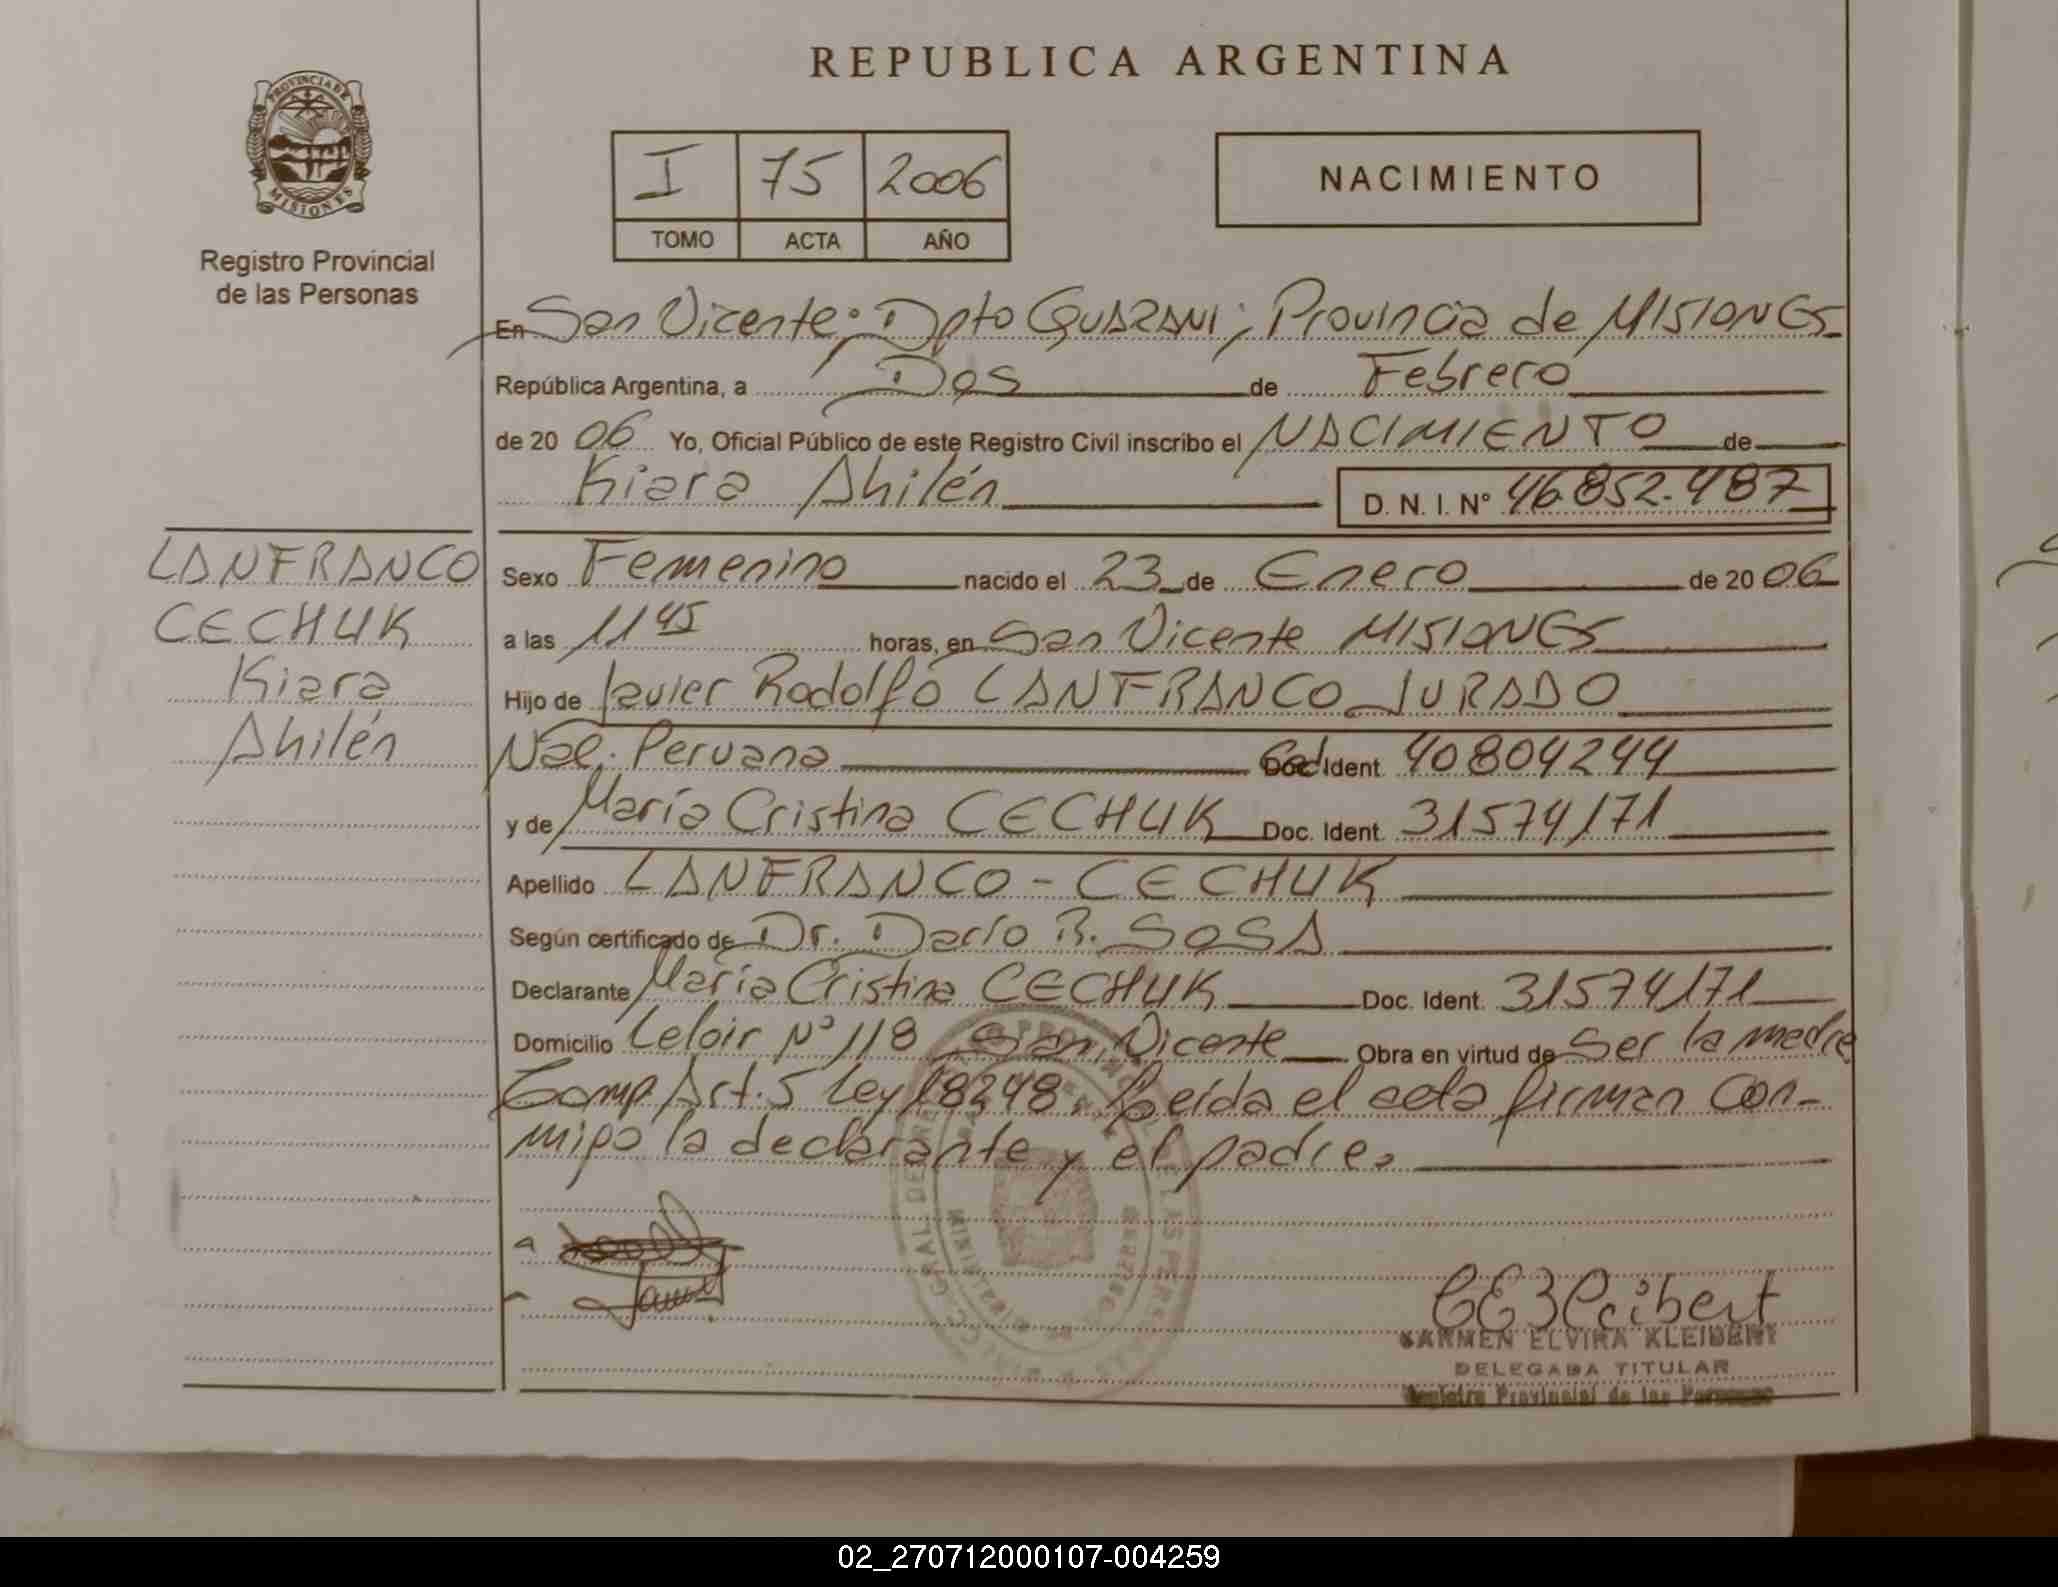 REPUBLICA ARGENTINA
PROVINCIA DE
MISIONES
Registro Provincial
de las Personas
I 75 2006
TOMO ACTA AÑO
NACIMIENTO
En San Vicente; Dpto GUARANI; Provincia de MISIONES
República Argentina, a Dos de Febrero
de 20 06 Yo, Oficial Público de este Registro Civil inscribo el NACIMIENTO de
Kiara Ahilén D. N. I. Nº 46.852.487
LANFRANCO
CECHUK
Kiara
Ahilén
Sexo Femenino nacido el 23 de Enero de 20 06
a las 11 45 horas, en San Vicente MISIONES
Hijo de Javier Rodolfo LANFRANCO JURADO
Nac. Peruana Ced Ident. 40804244
y de María Cristina CECHUK Doc. Ident. 31574171
Apellido LANFRANCO - CECHUK
Según certificado de Dr. Darío R. SOSA
Declarante María Cristina CECHUK Doc. Ident. 31574171
Domicilio Leloir Nº 118 San Vicente Obra en virtud de Ser la madre
Comp. Art. 5 Ley 18248. Leída el acta firman con-
migo la declarante y el padre.
CARMEN ELVIRA KLEIBERT
DELEGADA TITULAR
Registro Provincial de las Personas
02_270712000107-004259